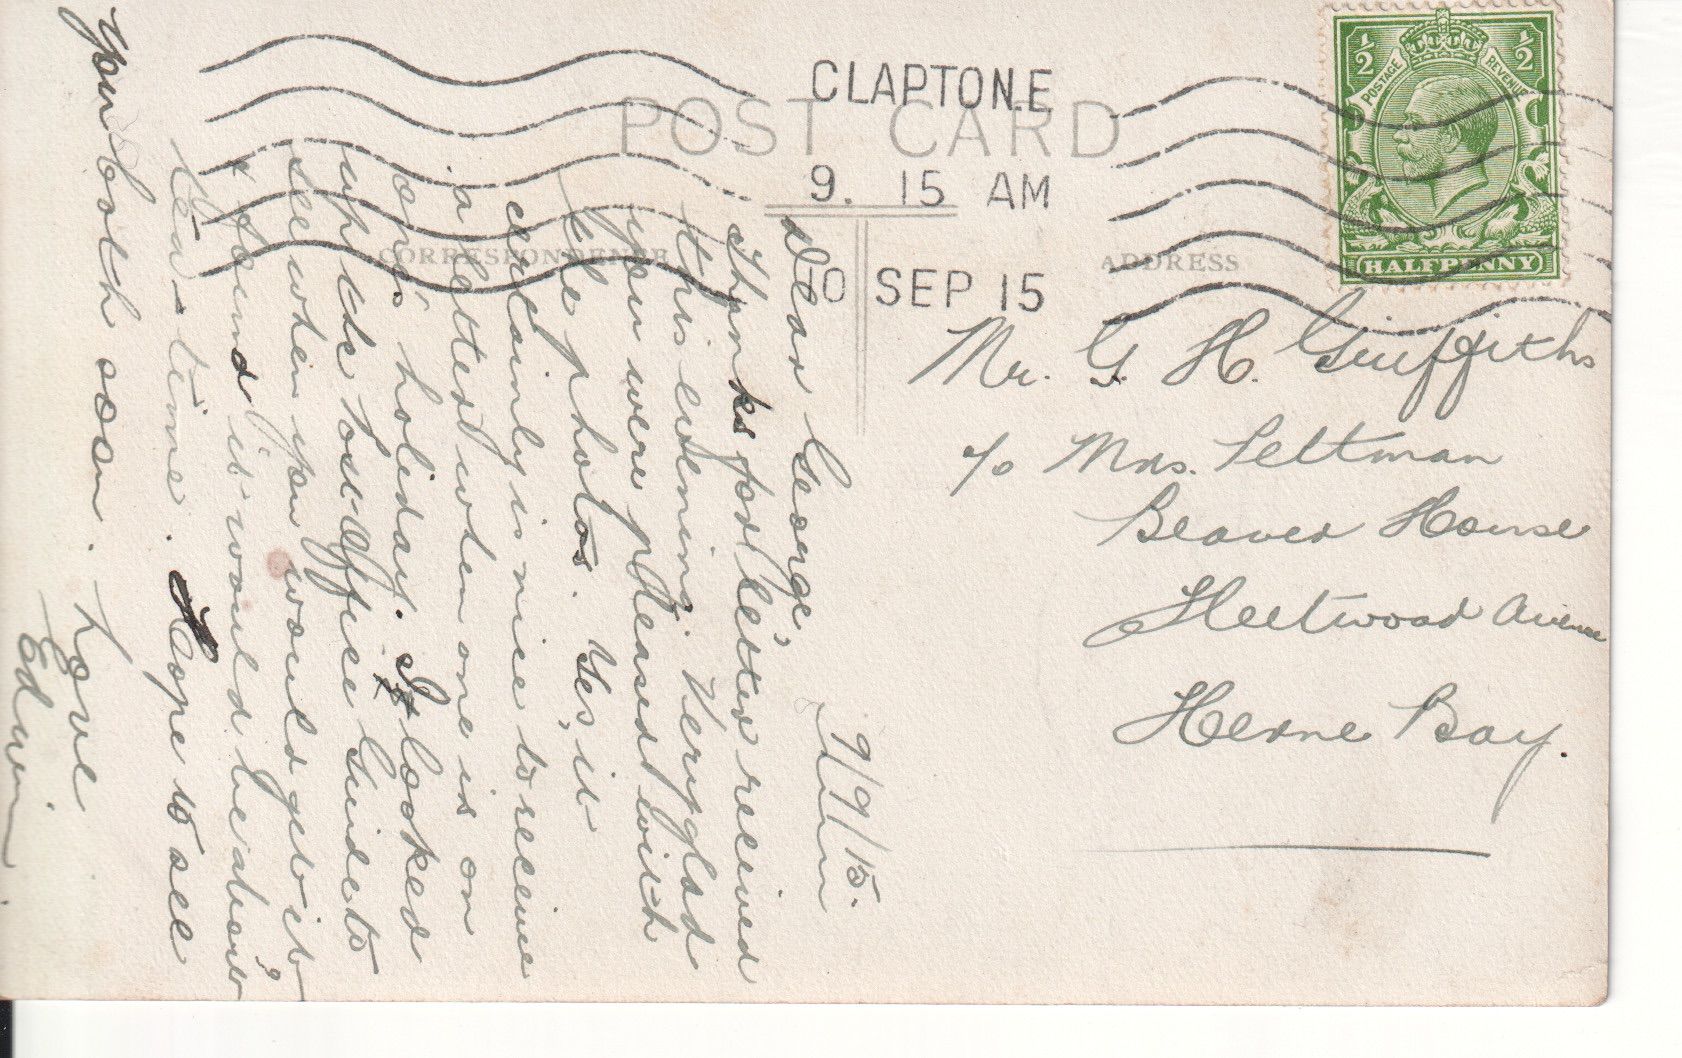 POST CARD
CLAPTON.E
9. 15 AM
10 SEP 15
CORRESPONDENCE
ADDRESS
POSTAGE
REVENUE
½
½
HALFPENNY
Mr. G. H. Griffiths
c/o Mrs. Peltman
Beaver House
Fleetwood Avenue
Herne Bay.
9/9/15.
Dear George,
Thanks for letter received
this evening. Very glad
you were pleased with
the photos. Yes, it
certainly is nice to receive
a letter when one is on
one's holiday. I looked
up the Post-Office Guide to
see when you would get it
& found it would be about
tea-time. Hope to see
you both soon. Love
Edwin